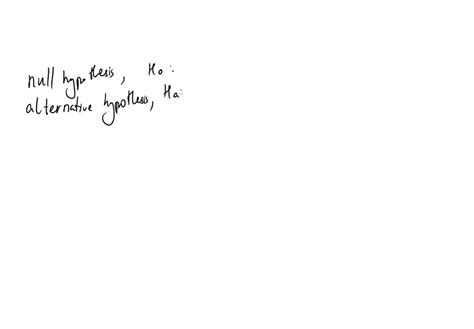 null hypothesis, H0:
alternative hypothesis, Ha: